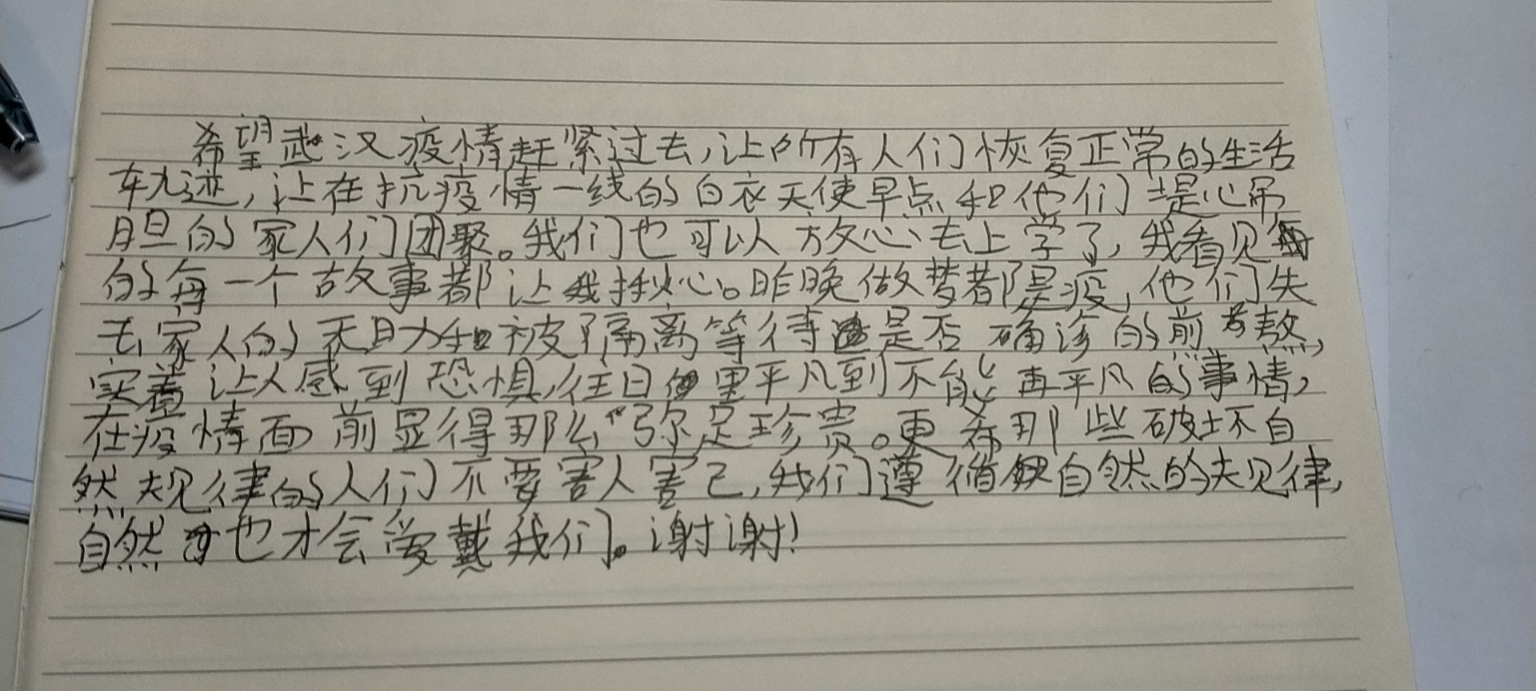 希望武汉疫情赶紧过去,让所有人们恢复正常的生活
轨迹,让在抗疫情一线的白衣天使早点和他们提心吊
胆的家人们团聚。我们也可以放心去上学了,我看见
的每一个故事都让我揪心。昨晚做梦都是疫,他们失
去家人的无助和被隔离等待是否确诊的煎熬,
实着让人感到恐惧,往日里平凡到不能再平凡的事情,
在疫情面前显得那么弥足珍贵。更希那些破坏自
然规律的人们不要害人害己,我们遵循自然的规律,
自然也才会爱戴我们。谢谢!